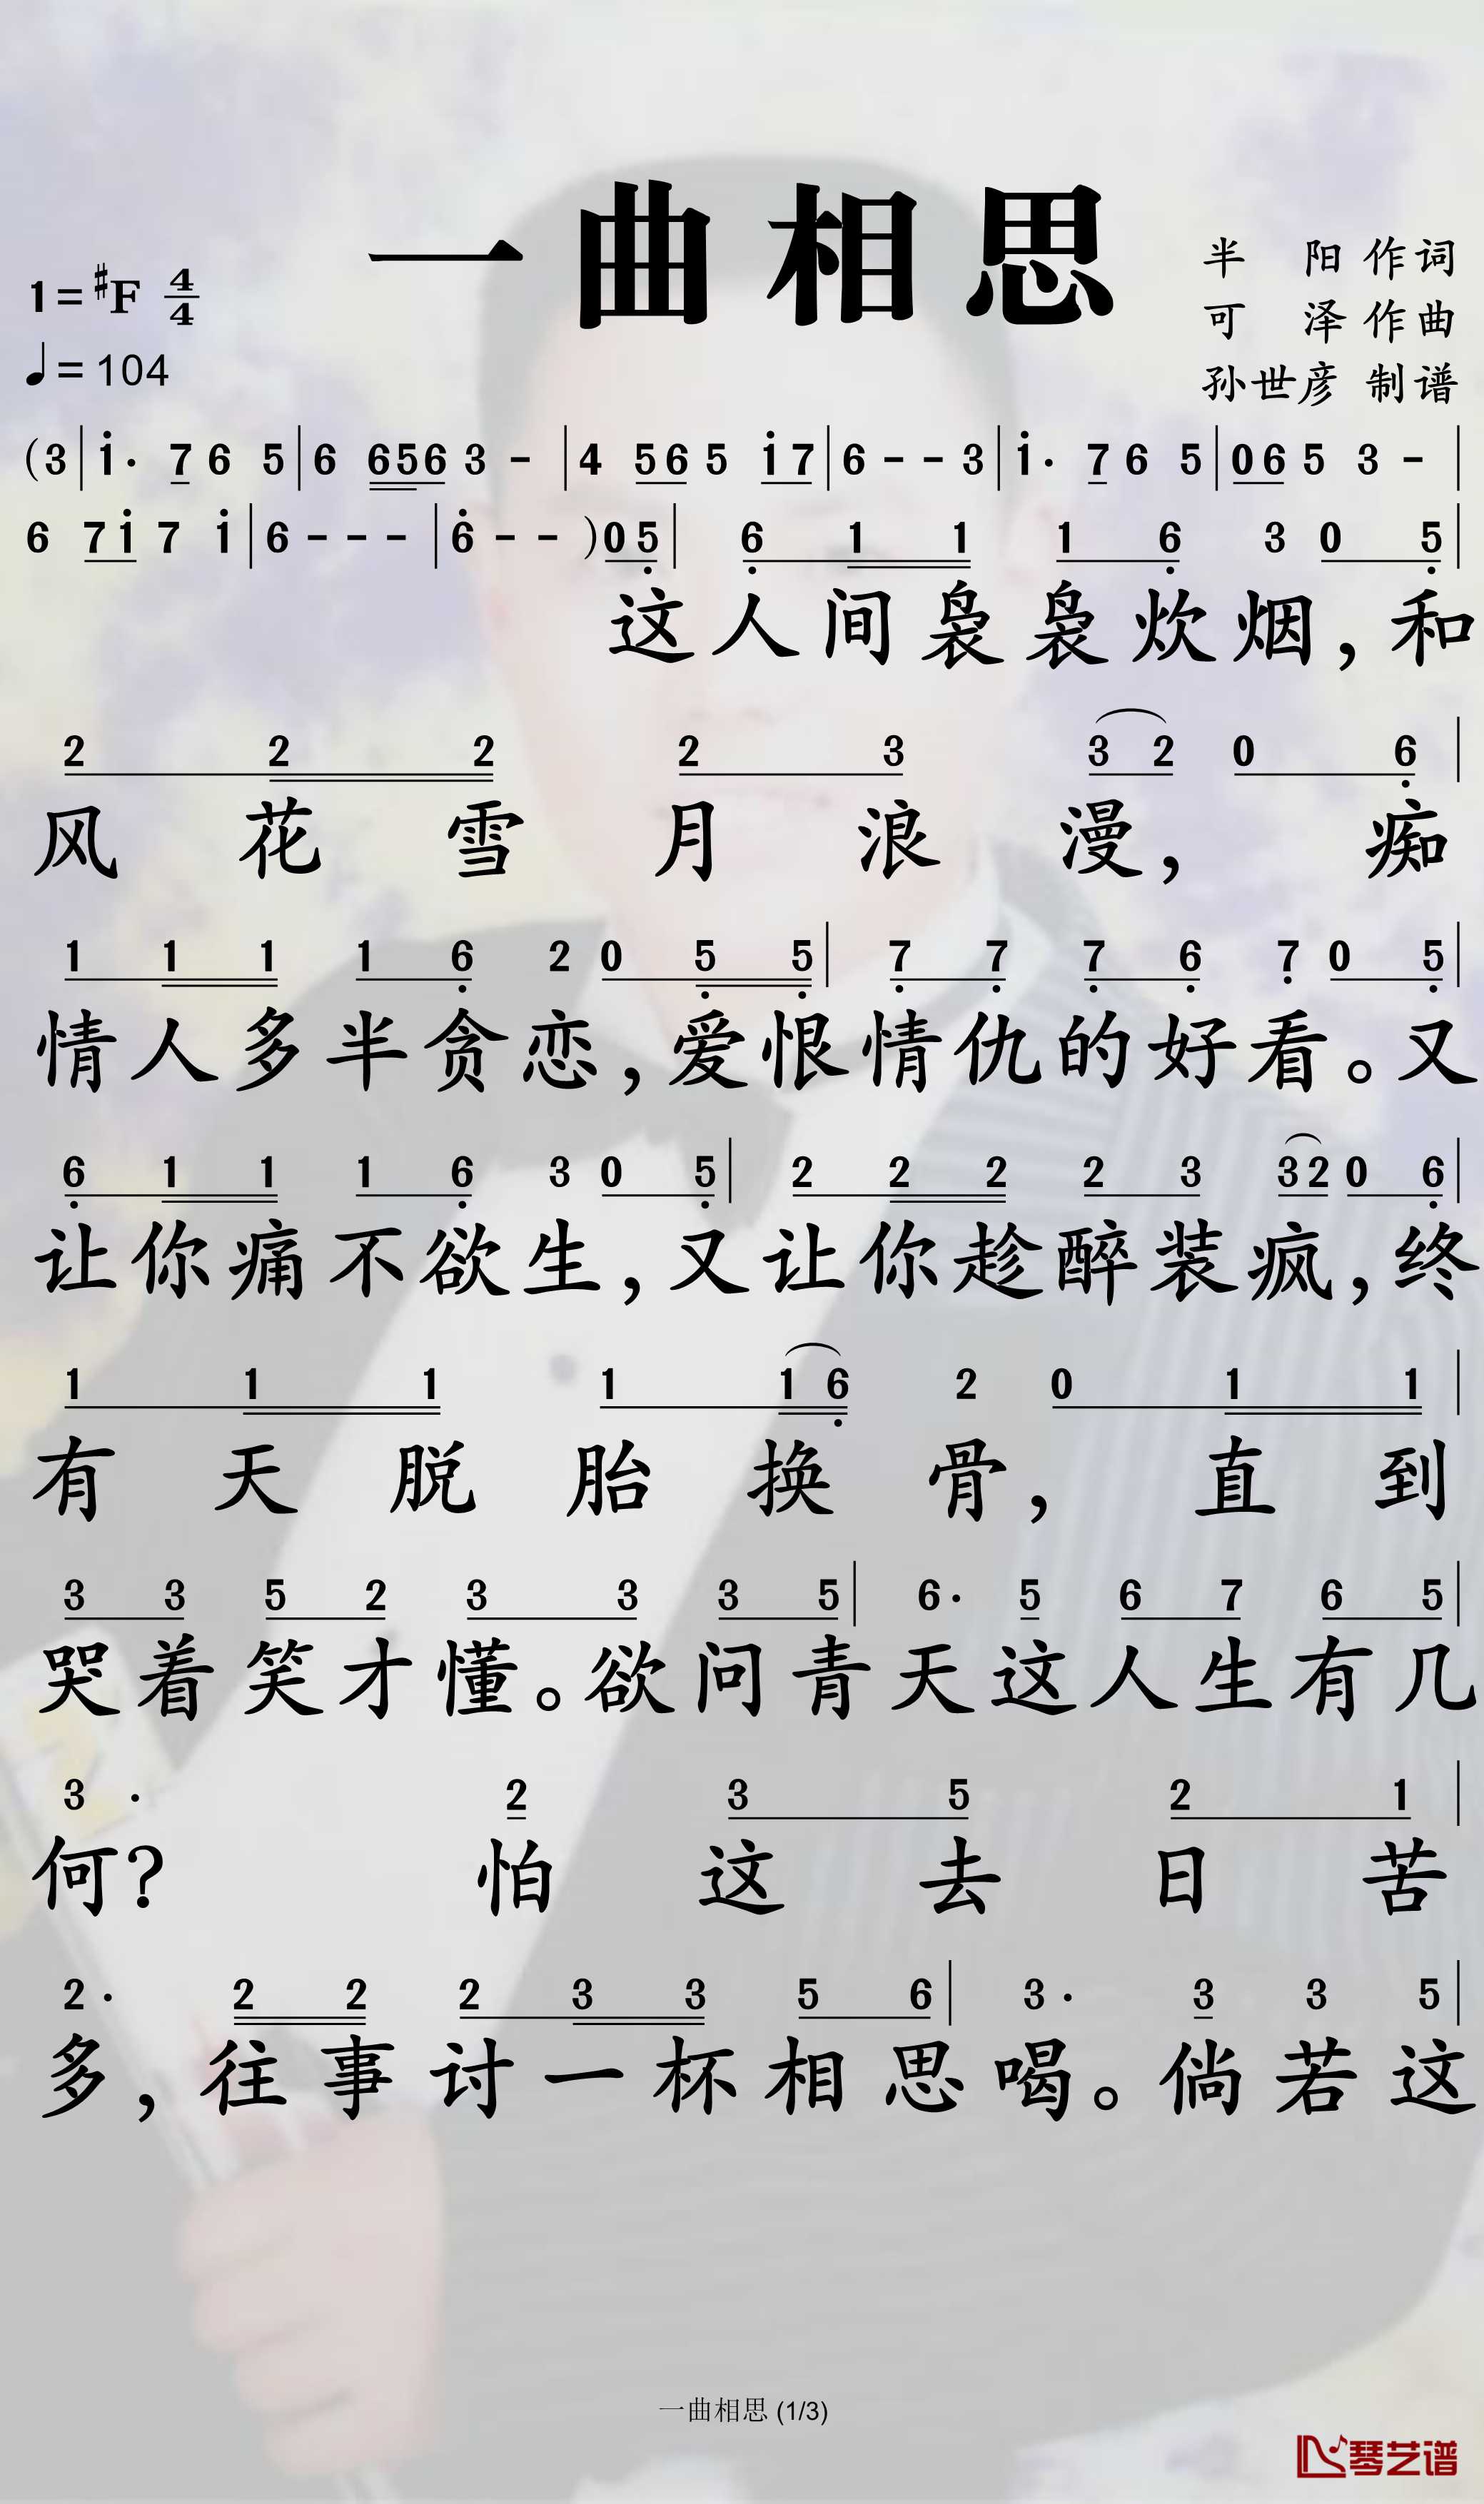 一曲相思
半 阳 作 词
可 泽 作 曲
孙世彦 制 谱
1=♯F 4/4
♩=104
(3|i· 7 6 5|6 656 3 -|4 56 5 i7|6 - - 3|i· 7 6 5|06 5 3 -|
6 7i 7 i|6 - - -|6̇ - - )05̣|6̣ 1 1 1 6̣ 3 0 5̣|
这人间袅袅炊烟，和
2 2 2 2 3 3 2 0 6̣|
风花雪月浪漫，痴
1 1 1 1 6̣ 2 0 5̣ 5̣|7̣ 7̣ 7̣ 6̣ 7̣ 0 5̣|
情人多半贪恋，爱恨情仇的好看。又
6̣ 1 1 1 6̣ 3 0 5̣|2 2 2 2 3 32 0 6̣|
让你痛不欲生，又让你趁醉装疯，终
1 1 1 1 1 6̣ 2 0 1 1|
有天脱胎换骨，直到
3 3 5 2 3 3 3 5|6· 5 6 7 6 5|
哭着笑才懂。欲问青天这人生有几
3 · 2 3 5 2 1|
何？怕这去日苦
2· 2 2 2 3 3 5 6|3· 3 3 5|
多，往事讨一杯相思喝。倘若这
一曲相思 (1/3)
琴艺谱